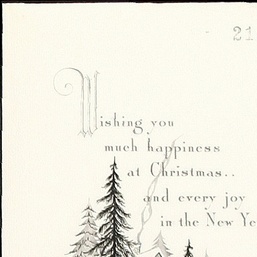 21
Wishing you
much happiness
at Christmas..
and every joy
in the New Ye